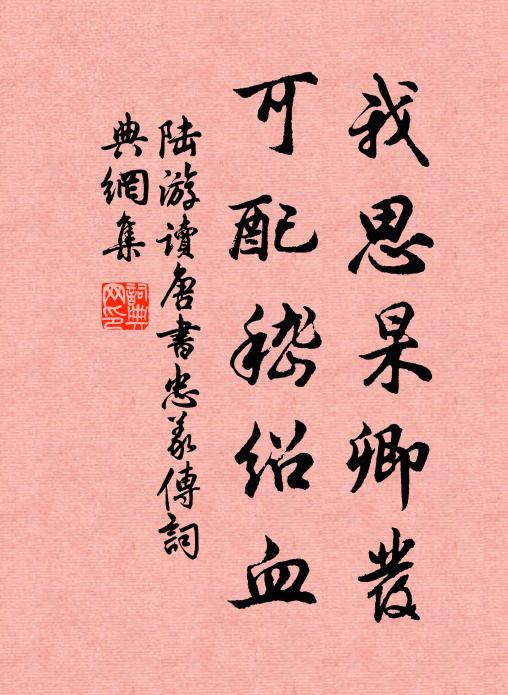 我思杲卿發
可配嵇紹血
陸游讀唐書忠義傳詞
典網集
詞典網印